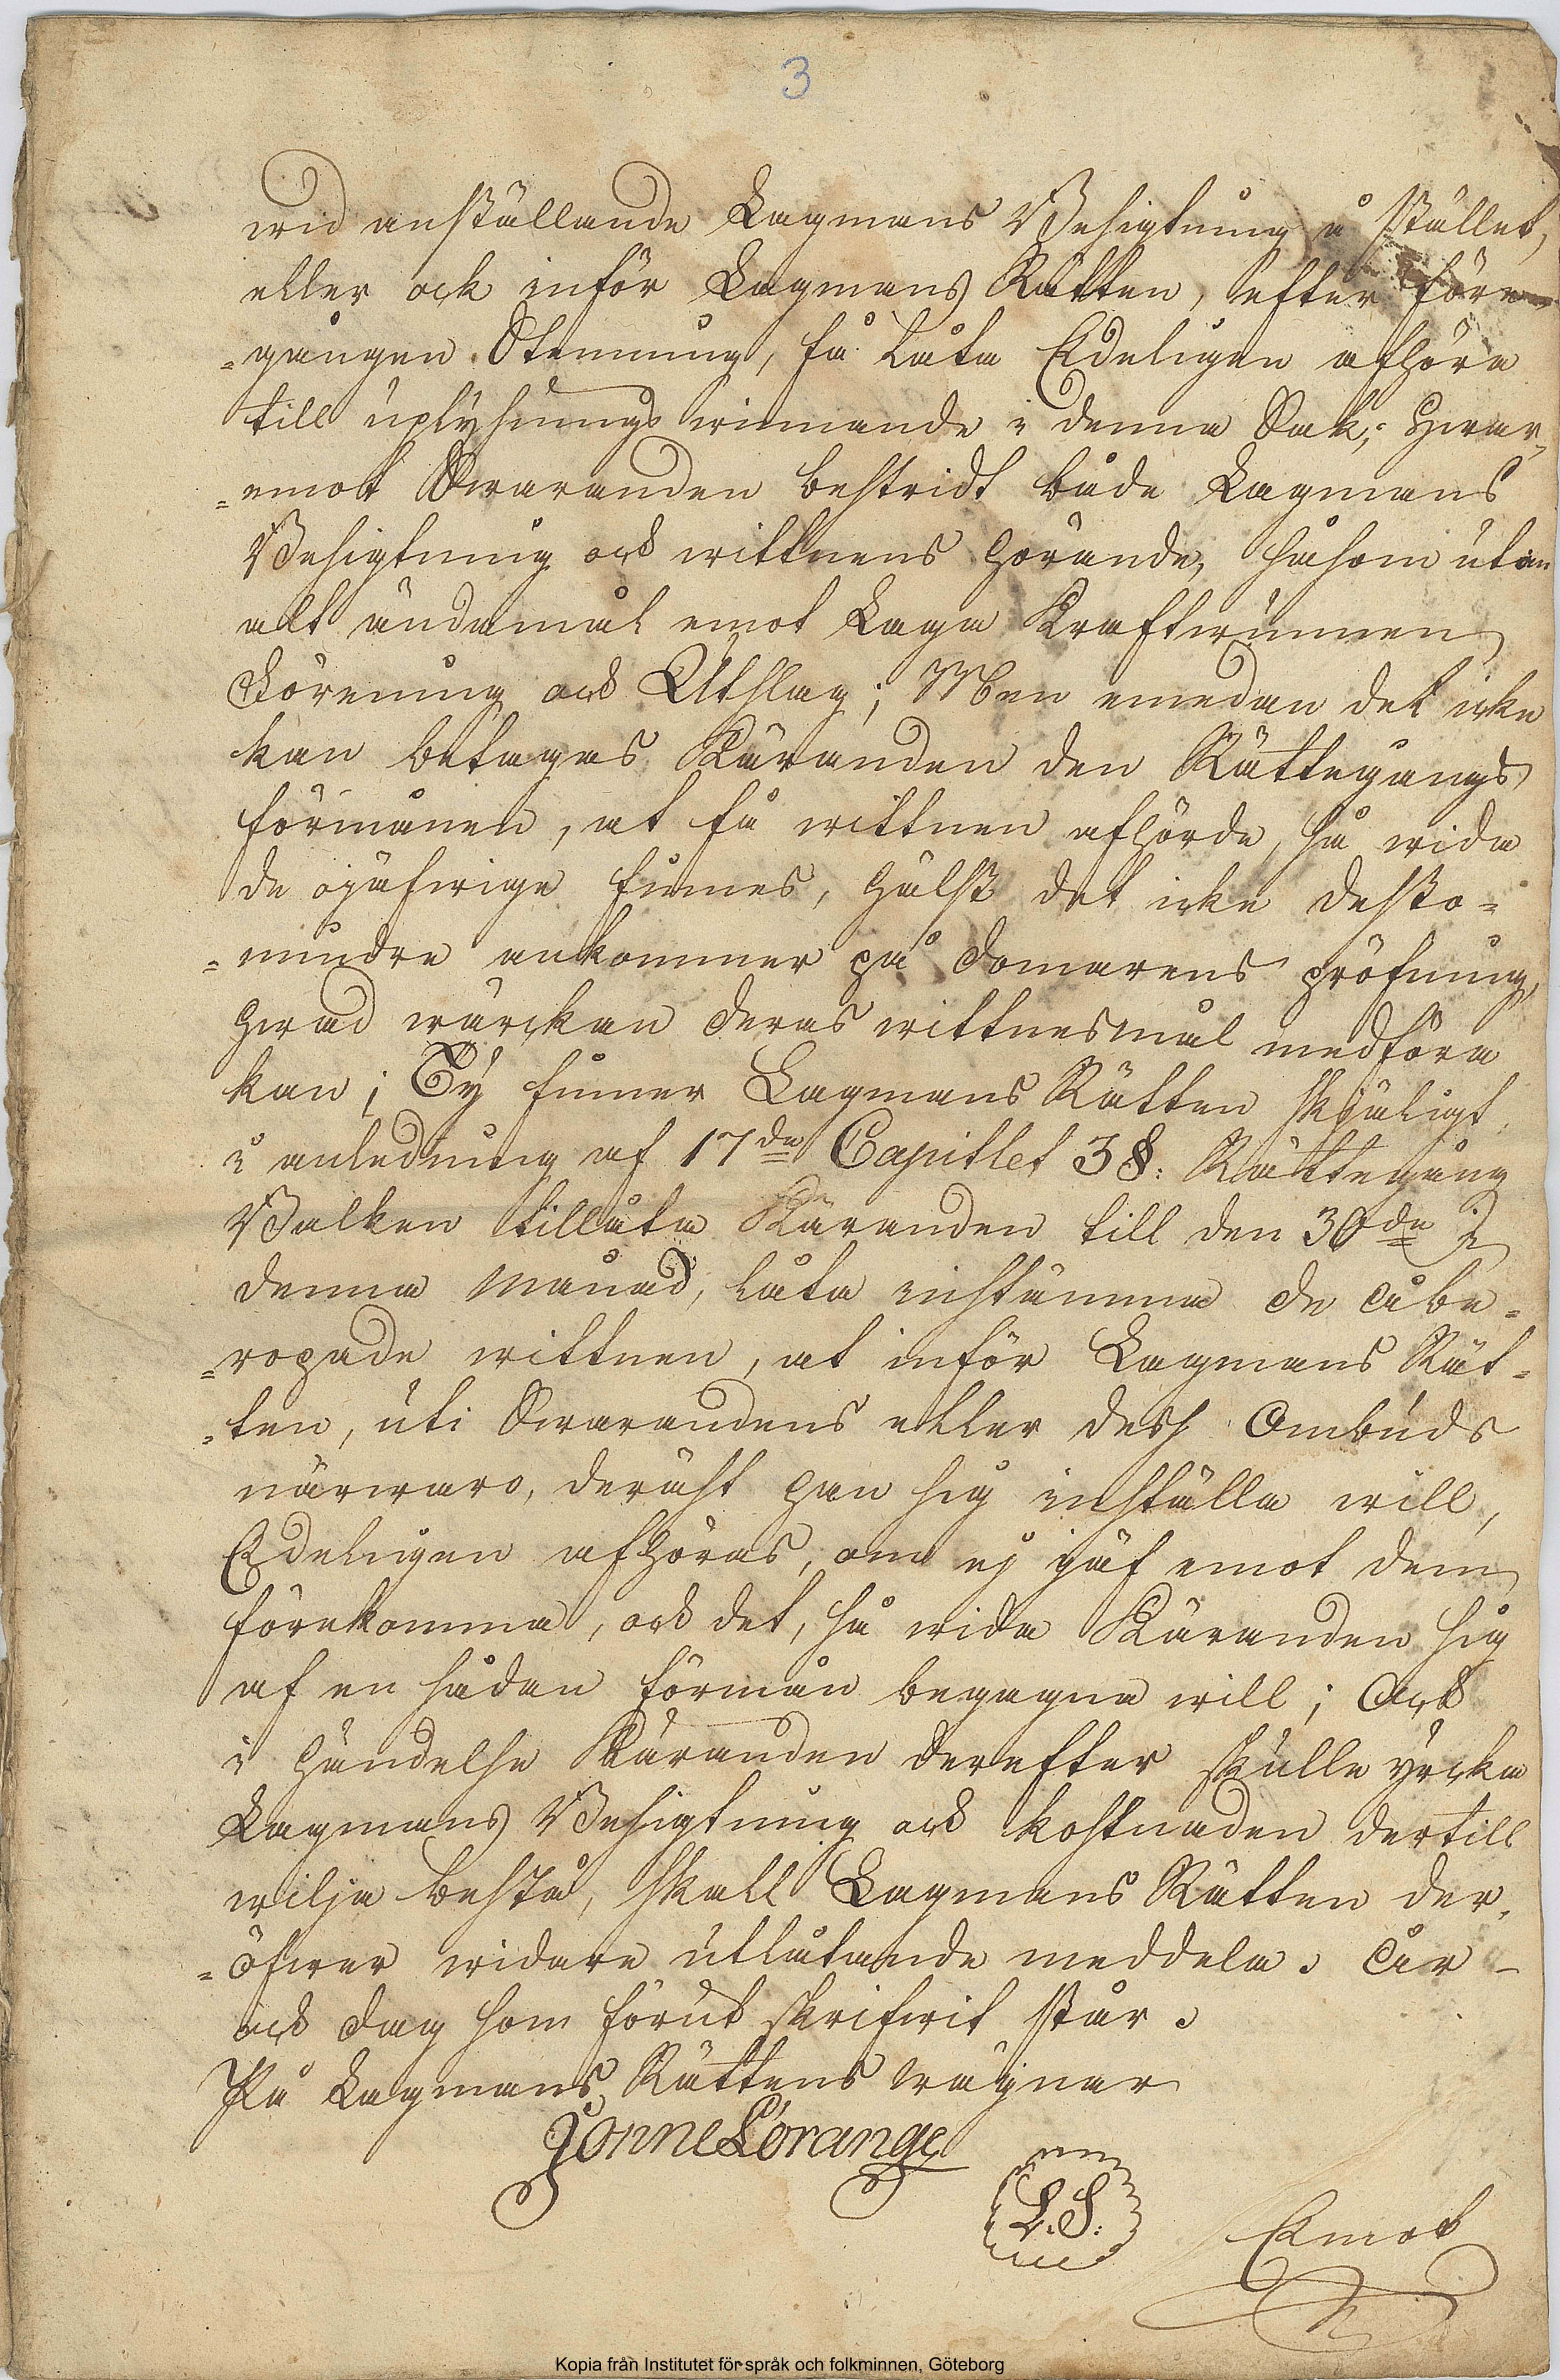 3
wid anställande Lagmans Besigtning å stället,
eller ock inför Lagmans Rätten, efter före-
=gången Stemning, få låta Edeligen afhöra
till uplysnings winnande i denna Sak; Hwar-
=emot Swaranden bestridt både Lagmans
Besigtning och wittnens hörande, såsom utan
alt ändamål emot Laga Kraftwunnen
Förening och Utslag; Men emedan det icke
kan betagas Käranden den Rättegångs
förmånen, at få wittnen afhörde, så wida
de ojäfwige finnes, hälst det icke desto=
=mindre ankommer på domarens pröfning,
hwad wärckan deras wittnesmål medföra
kan; Ty finner Lagmans Rätten skjäligt,
i anledning af 17de Capitlet 3 §: Rättegång
Balken tillåta Käranden till den 30de i
denna Månad, låta instämma de åbe=
=ropade wittnen, at inför Lagmans Rät=
=ten, uti Swarandens eller dess Ombuds
närwaro, deräst han sig inställa will,
Edeligen afhöras, om ej jäf emot dem
förekomma, och det, så wida Käranden sig
af en sådan förmån begagna will; Och
i händelse Käranden derefter skulle yrcka
Lagmans Besigtning och kostnaden dertill
wilja bestå, skall Lagmans Rätten der-
=öfwer widare utlåtande meddela. År
och dag som förut skrifwit står.
På Lagmans Rättens wägnar
Jonne L'orange
L.S:
Emot
Kopia från Institutet för språk och folkminnen, Göteborg